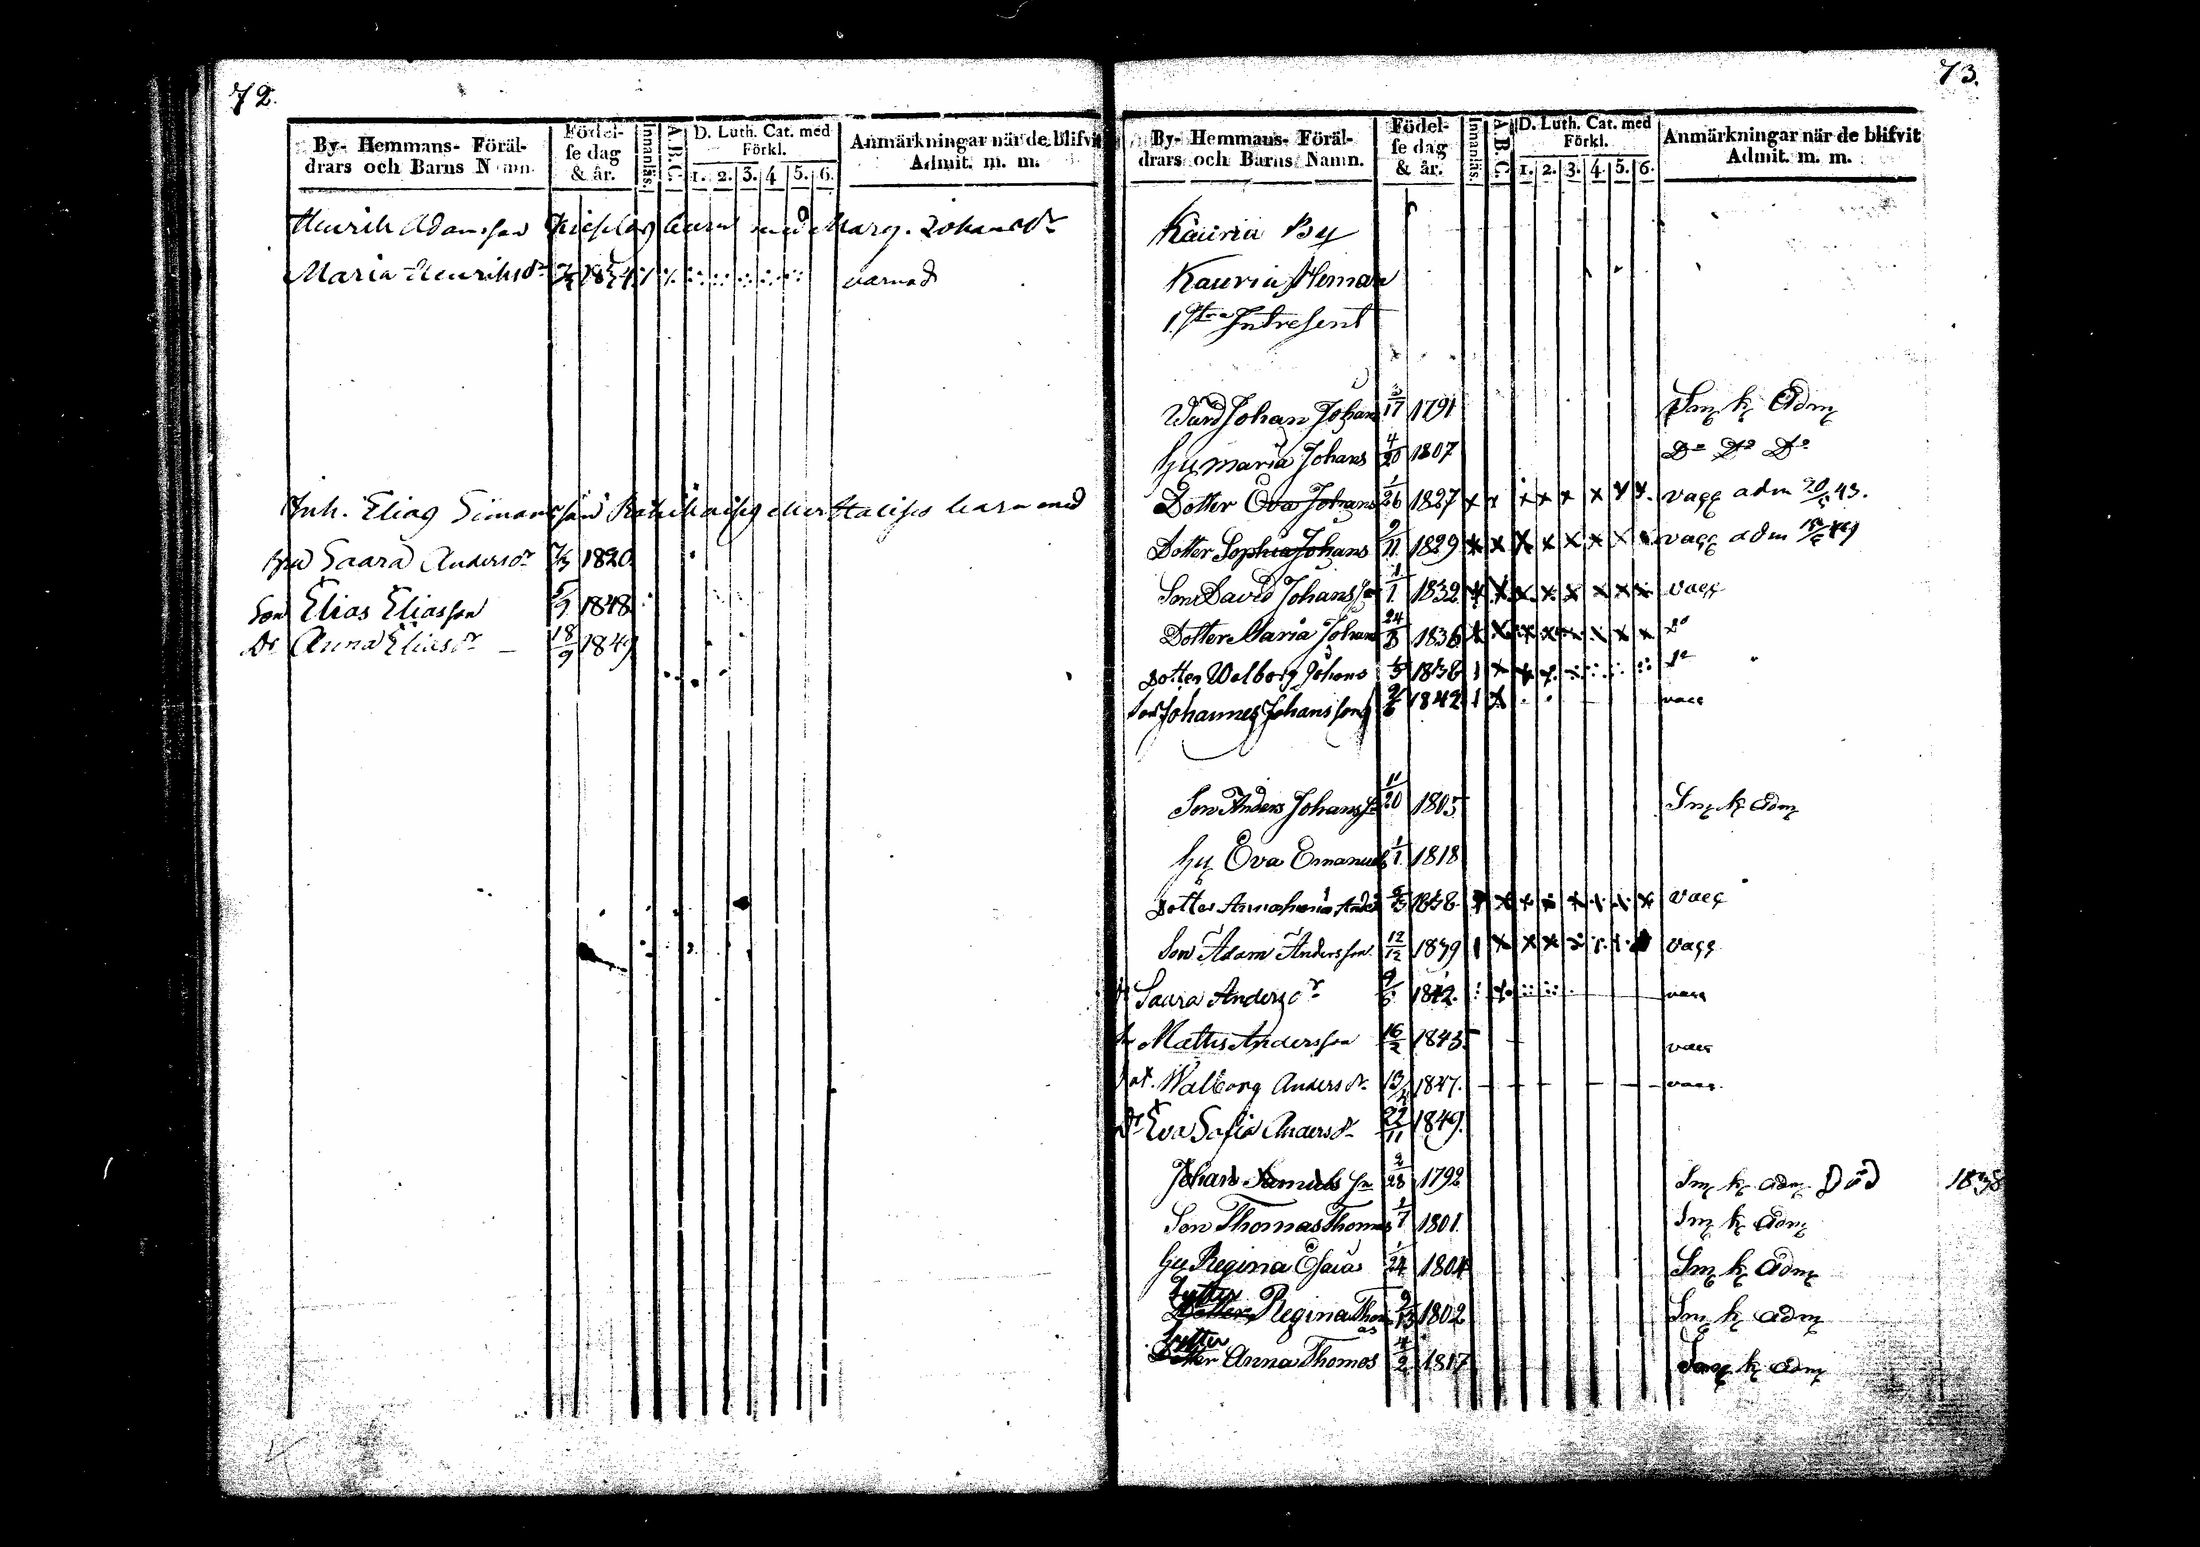 72.
By- Hemmans- Föräl-
drars och Barns Namn.
Födel-
se dag
& år.
Innanläs.
A.B.C.
D. Luth. Cat. med
Förkl.
1. 2. 3. 4 5. 6.
Anmärkningar när de blifvit
Admit. m. m.
Henrik Adamsson barn med Marg. Johansdr
Maria Henriksdr 1834 varnad
Inh. Elias Simonsson barn med
Saara Andersdr 1820
Son Elias Eliasson 1848
Dr Anna Eliasdr 18/9 1849
73.
By- Hemmans- Föräl-
drars och Barns Namn.
Födel-
se dag
& år.
Innanläs.
A.B.C.
D. Luth. Cat. med
Förkl.
1. 2. 3. 4. 5. 6.
Anmärkningar när de blifvit
Admit. m. m.
Kauria By
Kauria Heman
1 Intresent
Värd Johan Johans 2/17 1791 Sm k Adm
Hu Maria Johans 4/20 1807 Do Do Do
Dotter Eva Johans 1/26 1827 x x x x x x x x vacc adm 20/5 43.
Dotter Sophia Johans 9/11 1829 x x x x x x x x vacc adm
Son David Johansson 1/1 1832 x x x x x x x x vacc
Dotter Maria Johans 24/3 1836 x x x x x x x x Do
Dotter Walborg Johans 1838 Do
Son Johannes Johansson 9/6 1842 vacc
Son Anders Johansson 11/20 1805 Sm k Adm
Hu Eva Emanuels 1/1 1818
Dotter Anna Anders 1838 vacc
Son Adam Andersson 12/12 1839 vacc
Dr Saara Andersdr 9/6 1842. vacc
Sn Matts Andersson 16/2 1845 vacc
Dot. Walborg Andersdr 13/4 1847. vacc
Dr Eva Sofia Andersdr 22/11 1849.
Johan Samuelsson 2/28 1792 Sm k adm Död 1838
Son Thomas Thomas 1/7 1801. Sm k Adm
Hu Regina Esaias 1/24 1804 Sm k Adm
Syster
Dotter Regina Thomas 9/13 1802 Sm k adm
Syster
Dotter Anna Thomas 4/2 1817 Sm k adm